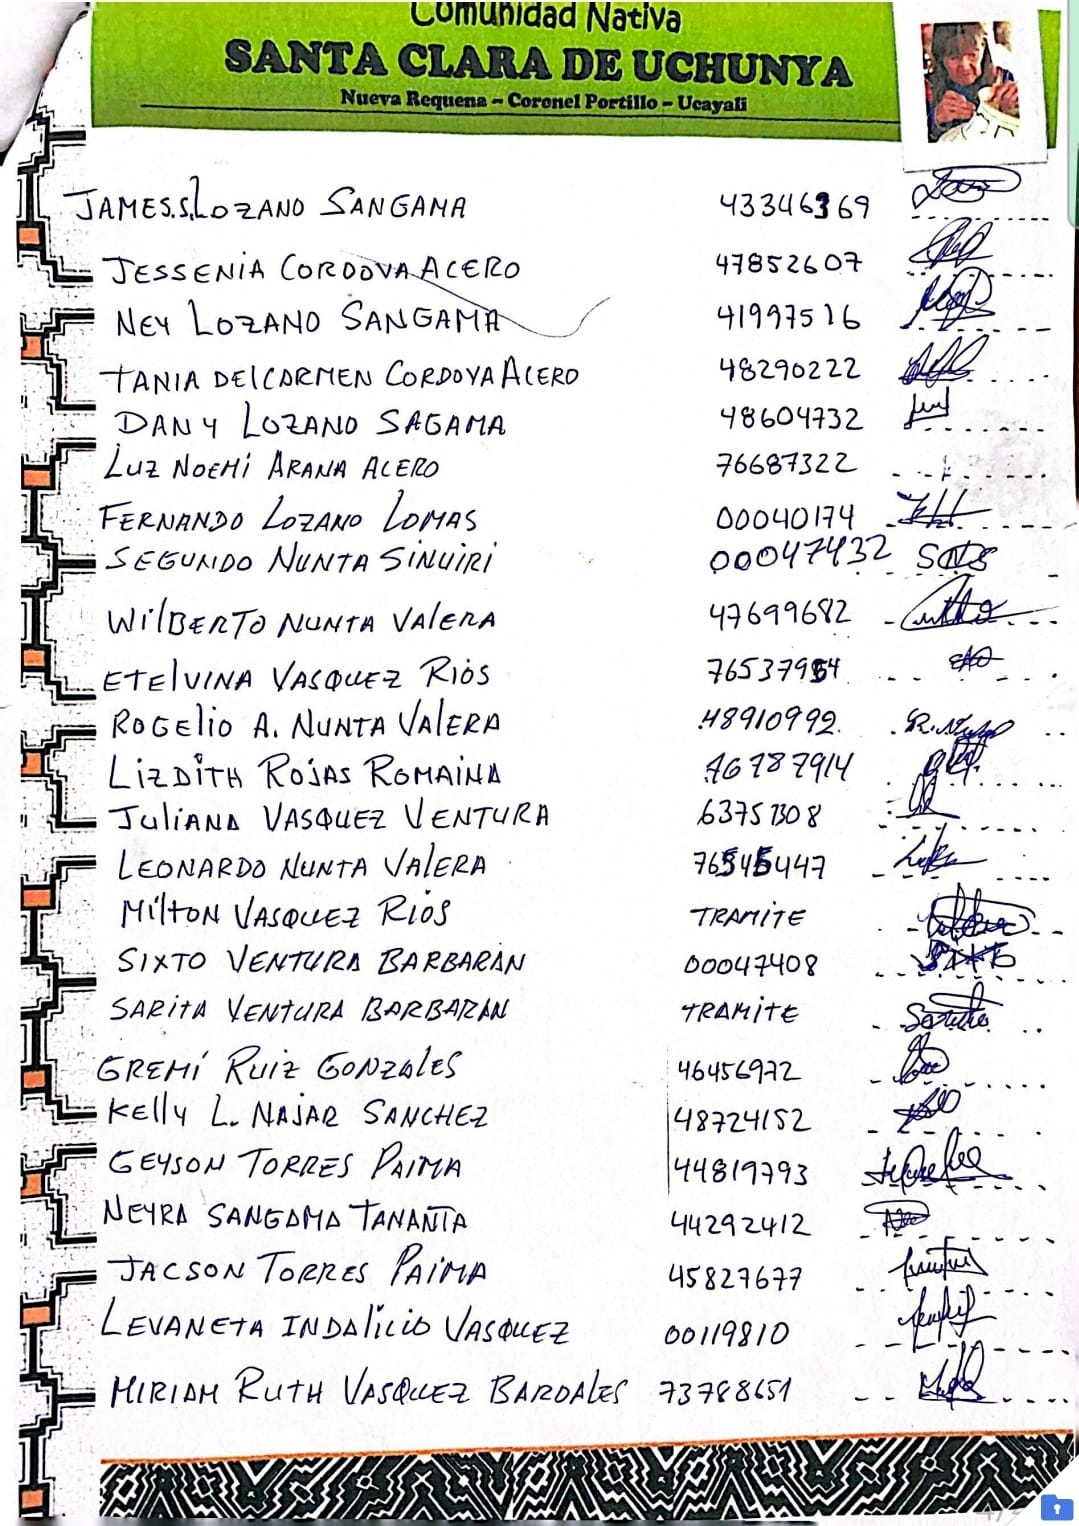 Comunidad Nativa
SANTA CLARA DE UCHUNYA
Nueva Requena – Coronel Portillo – Ucayali
JAMES.S.LOZANO SANGAMA 43346369
JESSENIA CORDOVA ACERO 47852607
NEY LOZANO SANGAMA 41997516
TANIA DEL CARMEN CORDOVA ACERO 48290222
DANY LOZANO SAGAMA 48604732
LUZ NOEMI ARANA ACERO 76687322
FERNANDO LOZANO LOMAS 00040174
SEGUNDO NUNTA SINUIRI 00047432
WILBERTO NUNTA VALERA 47699682
ETELVINA VASQUEZ RIOS 76537954
ROGELIO A. NUNTA VALERA 48910992
LIZDITH ROJAS ROMAINA 46787914
JULIANA VASQUEZ VENTURA 63751308
LEONARDO NUNTA VALERA 76545447
MILTON VASQUEZ RIOS TRAMITE
SIXTO VENTURA BARBARÁN 00047408
SARITA VENTURA BARBARÁN TRAMITE
GREMÍ RUIZ GONZALES 46456972
KELLY L. NAJAR SANCHEZ 48724152
GEYSON TORRES PAIMA 44819793
NEYRA SANGAMA TANANTA 44292412
JACSON TORRES PAIMA 45827677
LEVANETA INDALICIO VASQUEZ 00119810
MIRIAM RUTH VASQUEZ BARDALES 73788651